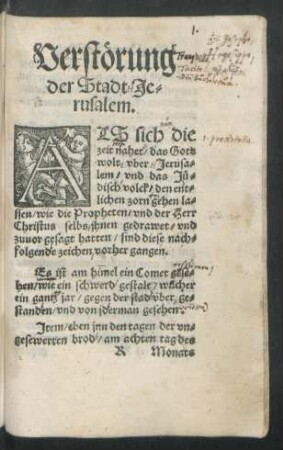 1.
Verstörung
der Stadt Je-
rusalem.
ALS sich die
zeit nahet/ das Gott
wolt/ vber/ Jerusa-
lem/ vnd das Jü-
disch volck/ den ent-
lichen zorn gehen la-
ssen/ wie die Propheten/ vnd der Herr
Christus selbs/ jhnen gedrawet/ vnd
zuuor gesagt hatten/ sind diese nach-
folgende zeichen/ vorher gangen.
Es ist am himel ein Comet gese-
hen/ wie ein schwerd/ gestalt/ welcher
ein gantz jar/ gegen der stad/ vber/ ge-
standen/ vnd von jderman gesehen.
Item/ eben jnn den tagen der vn-
geseworren brod/ am achten tag des
R Monats